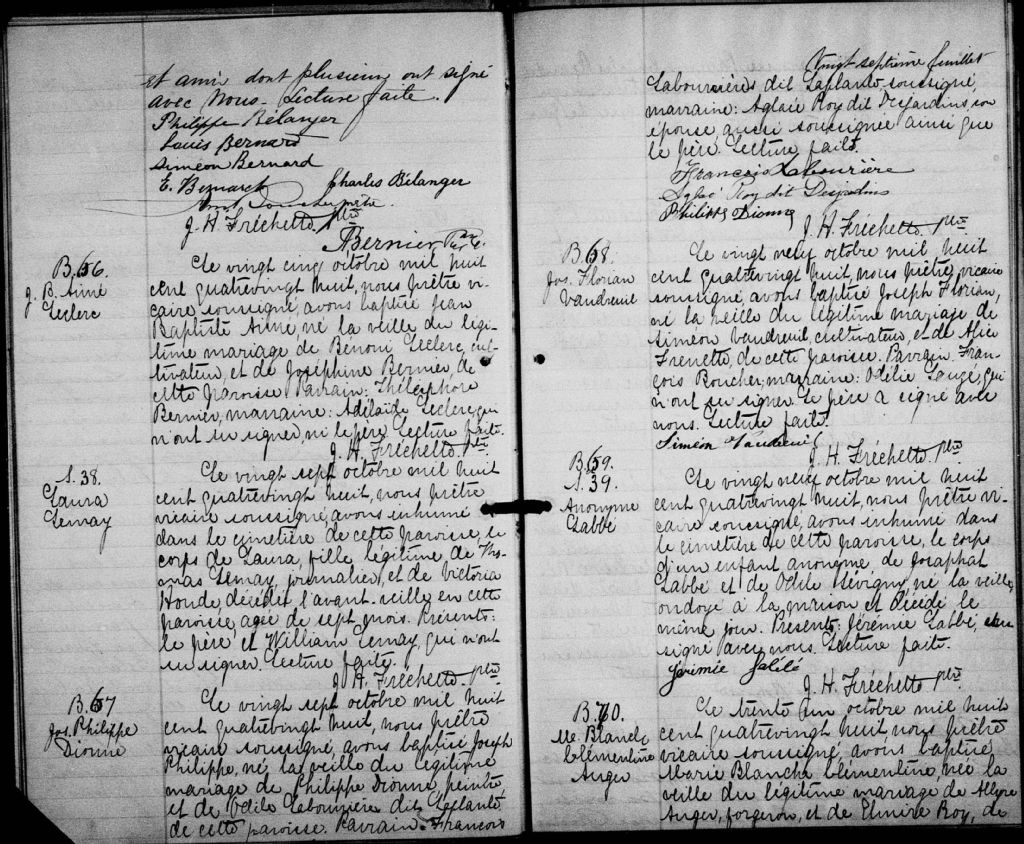 et amis dont plusieurs ont signé
avec nous. Lecture faite.
Philippe Bélanger
Louis Bernard
Simeon Bernard
E. Bernard Charles Bélanger
J. H. Fréchette Ptre
Bernier Ptre
B. 66.
J. B. Aimé
Leclerc
Le vingt cinq octobre mil huit
cent quatrevingt huit, nous prêtre vi-
caire soussigné, avons baptisé Jean
Baptiste Aimé né la veille du légi-
time mariage de Bénoni Leclerc, cul-
tivateur, et de Joséphine Bernier, de
cette paroisse. Parrain: Théléphore
Bernier, marraine: Adélaïde Leclerc, qui
n'ont su signer, ni le père. Lecture faite.
J. H. Fréchette. Ptre
S. 38.
Laura
Lemay
Le vingt sept octobre mil huit
cent quatrevingt huit, nous prêtre
vicaire soussigné, avons inhumé
dans le cimetière de cette paroisse, le
corps de Laura, fille légitime de Tho-
mas Lemay, journalier, et de Victoria
Houde, décédée l'avant-veille en cette
paroisse, agée de sept mois. Présents:
le père, et William Lemay, qui n'ont
su signer. Lecture faite.
J. H. Fréchette. Ptre
B. 67
Jos. Philippe
Dionne
Le vingt sept octobre mil huit
cent quatrevingt huit, nous prêtre
vicaire soussigné, avons baptisé Joseph
Philippe, né la veille du légitime
mariage de Philippe Dionne, peintre,
et de Odile Labounière dit Laplante,
de cette paroisse. Parrain: François
Vingt septième feuillet
Labounières dit Laplante soussigné,
marraine: Aglaé Roy dit Desjardins, son
épouse, aussi soussignée ainsi que
le père. Lecture faite.
François Labourière
Aglaé Roy dit Desjardins
Philippe Dionne
J. H. Fréchette Ptre
B. 68.
Jos. Florian
Vaudreuil
Le vingt neuf octobre mil huit
cent quatrevingt huit, nous prêtre vicaire
soussigné, avons baptisé Joseph Florian,
né la veille du légitime mariage de
Siméon Vaudreuil, cultivateur, et de Alice
Frenette, de cette paroisse. Parrain: Fran-
çois Boucher, marraine: Odélie Laugé, qui
n'ont su signer. Le père a signé avec
nous. Lecture faite.
Siméon Vaudreuil
J. H. Fréchette. Ptre
B. 69.
S. 39.
Anonyme
Labbé
Le vingt neuf octobre mil huit
cent quatrevingt huit, nous prêtre vi-
caire soussigné, avons inhumé dans
le cimetière de cette paroisse, le corps
d'un enfant anonyme, de Josaphat
Labbé et de Odile Sévigny, né la veille,
ondoyé à la maison et décédé le
même jour. Présents: Jérémie Labbé,
signé avec nous. Lecture faite.
Jérimie Labbé
J. H. Fréchette Ptre
B. 70.
M. Blanche
Clémentine
Auger
Le trente un octobre mil huit
cent quatrevingt huit nous prêtre
vicaire soussigné, avons baptisé,
Marie Blanche Clémentine, née la
veille du légitime mariage de Allyre
Auger, forgeron, et de Elmire Roy, de